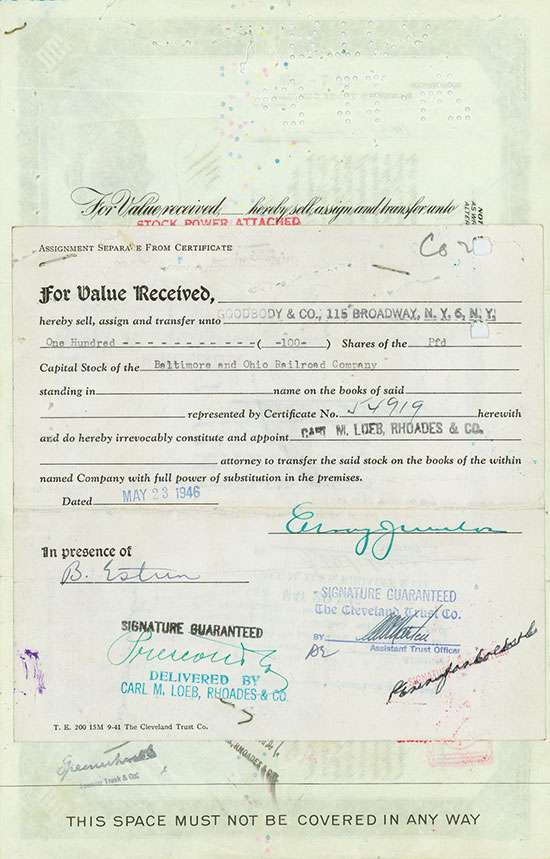 For Value received, hereby sell, assign and transfer unto
STOCK POWER ATTACHED
ASSIGNMENT SEPARATE FROM CERTIFICATE
Co
For Value Received,
hereby sell, assign and transfer unto GOODBODY & CO., 115 BROADWAY, N. Y. 6, N. Y.
One Hundred - - - - - - - - - - - ( -100- ) Shares of the Pfd
Capital Stock of the Baltimore and Ohio Railroad Company
standing in name on the books of said
represented by Certificate No. 54919 herewith
and do hereby irrevocably constitute and appoint CARL M. LOEB, RHOADES & CO.
attorney to transfer the said stock on the books of the within
named Company with full power of substitution in the premises.
Dated MAY 23 1946
In presence of
B. Estrin
SIGNATURE GUARANTEED
The Cleveland Trust Co.
BY
Assistant Trust Officer
SIGNATURE GUARANTEED
Prescott & Co
DELIVERED BY
CARL M. LOEB, RHOADES & CO.
T. E. 200 15M 9-41 The Cleveland Trust Co.
THIS SPACE MUST NOT BE COVERED IN ANY WAY